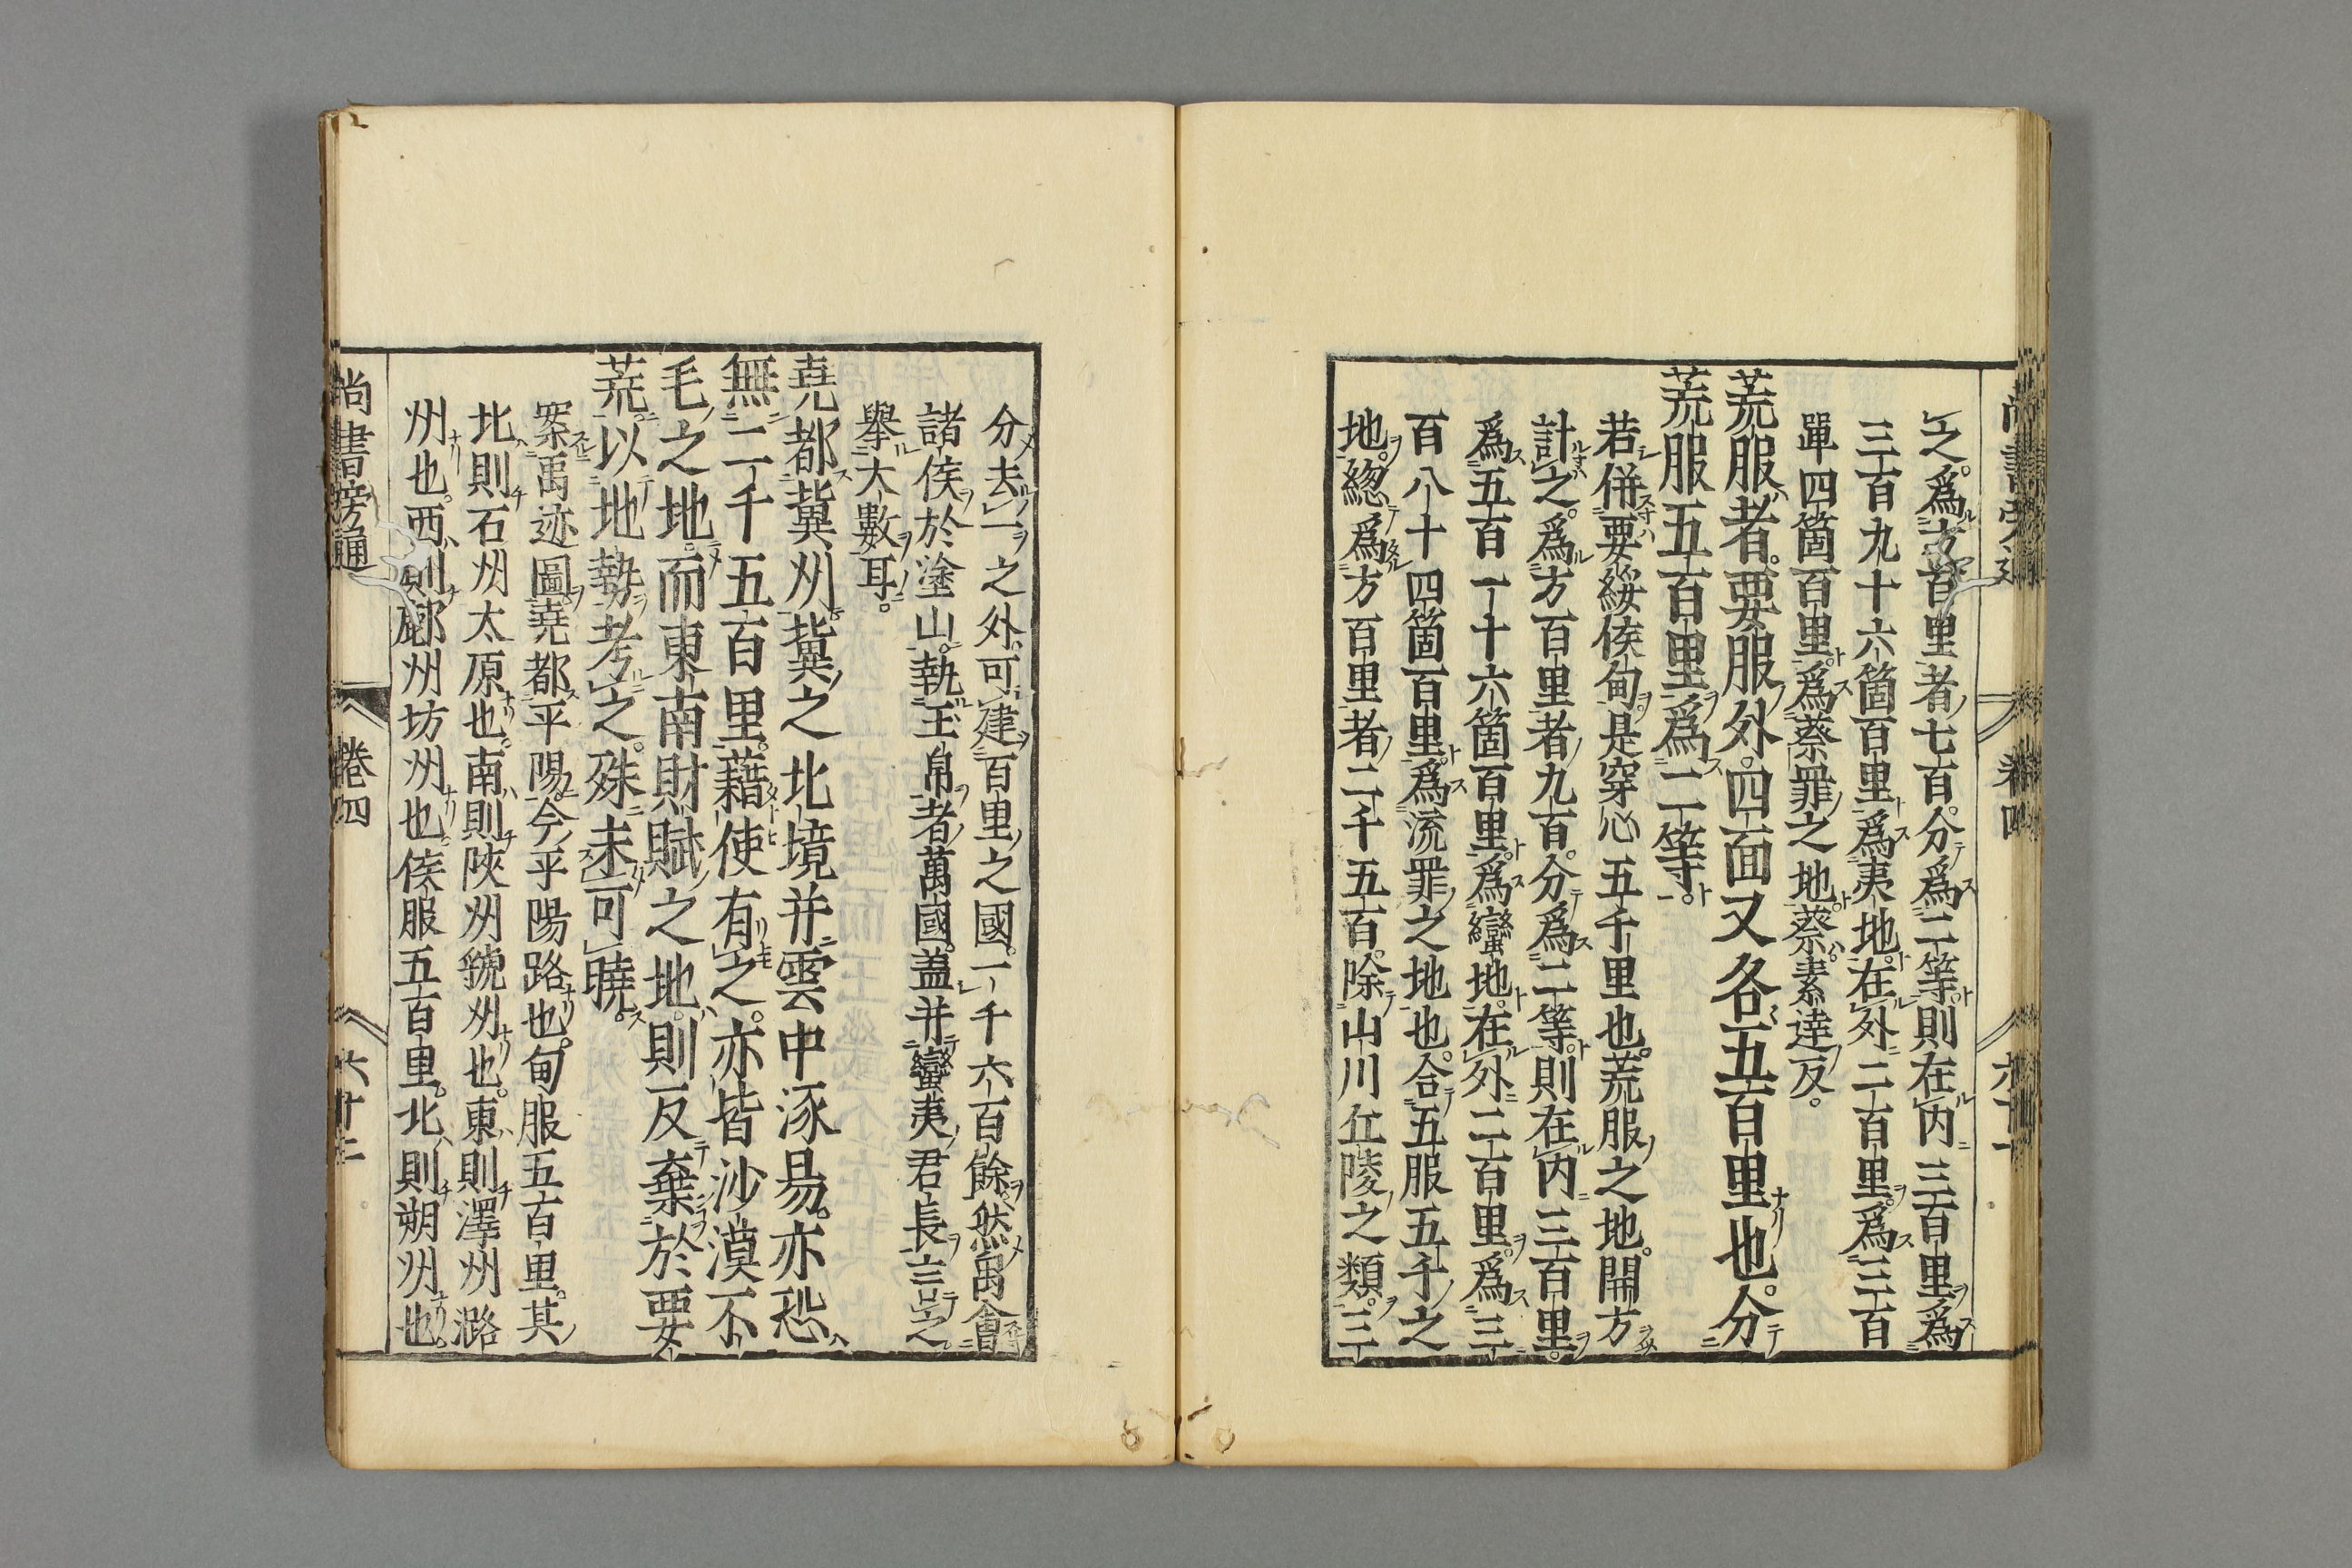 之爲方百里者七百分爲二等則在内三百里爲
三百九十六箇百里爲夷地在外二百里爲三百
單四箇百里爲蔡罪之地蔡素達反。
荒服者要服外四面又各五百里也分
荒服五百里爲二等
若併要綏侯甸是穿心五千里也荒服之地開方
計之爲方百里者九百分爲二等則在内三百里
爲五百一十六箇百里爲蠻地在外二百里爲三
百八十四箇百里爲流罪之地也合五服五千之
地緫爲方百里者二千五百除山川丘陵之類三
分去一之外可建百里之國一千六百餘然禹會
諸侯於塗山執玉帛者萬國蓋并蠻夷君長言之
舉大數耳。
堯都冀州冀之北境并雲中涿易亦恐
無二千五百里藉使有之亦皆沙漠不
毛之地而東南財賦之地則反棄於要
荒以地勢考之殊未可曉
案禹迹圖堯都平陽今平陽路也甸服五百里其
北則石州太原也南則陝州虢州也東則澤州潞
州也西則鄜州坊州也侯服五百里北則朔州也
尚書旁通 卷四 六十二